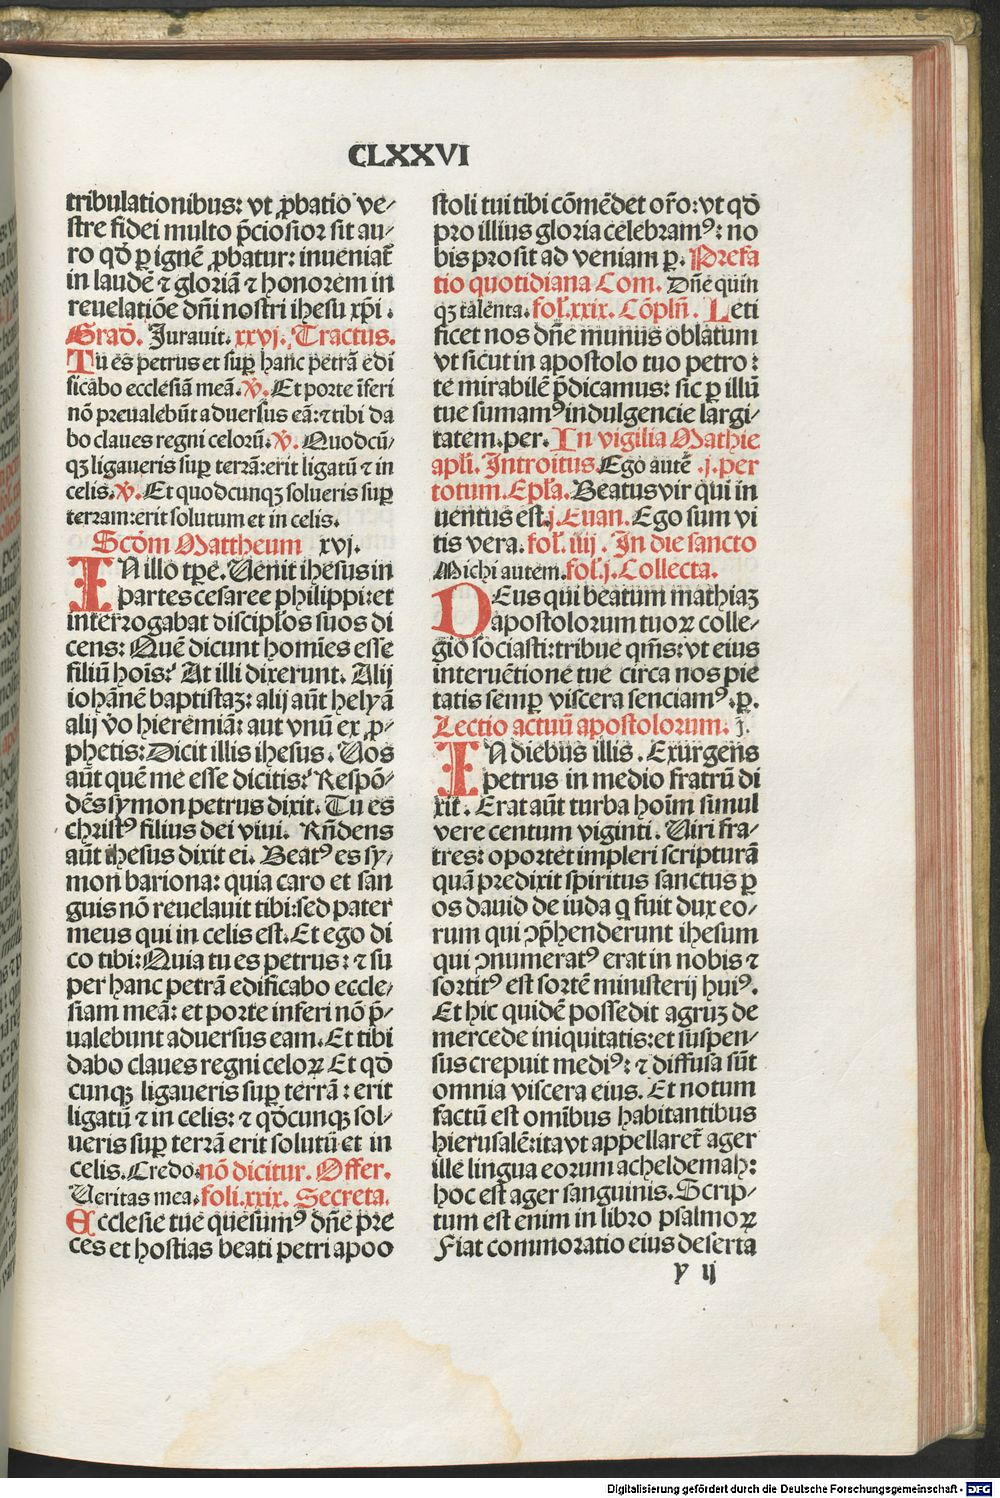 CLXXVI
tribulationibus: vt ꝓbatio ve⸗
stre fidei multo p̄ciosior sit au⸗
ro qď ꝑ ignē ꝓbatur: inueniat᷑
in laudē ⁊ gloriā ⁊ honorem in
reuelatiōe dn̄i nostri ihesu xp̄i .
Grad̄. Jurauit. xxvj. Tractus.
Tu es petrus et suꝑ hanc petrā edi
ficabo ecclesiā meā. ℣. Et porte īferi
nō preualebūt aduersus eā: ⁊ tibi da
bo claues regni celorū. ℣. Quodcū⸗
qꝫ ligaueris suꝑ terrā: erit ligatū ⁊ in
celis. ℣. Et quodcunqꝫ solueris suꝑ
terram: erit solutum et in celis.
Scd̄m Mattheum xvj.
IN illo tꝑe. Uenit ihesus in
partes cesaree philippi: et
interrogabat discipl̄os suos di
cens: Quē dicunt homīes esse
filiū hoīs? At illi dixerunt. Alij
iohānē baptistaꝫ: alij aūt helyā
alij v̄o hieremiā: aut vnū ex ꝓ⸗
phetis: Dicit illis ihesus. Uos
aūt quē me esse dicitis? Respō⸗
dēs symon petrus dixit. Tu es
christꝰ filius dei viui. Rn̄dens
aūt ihesus dixit ei. Beatꝰ es sy⸗
mon bariona: quia caro et san
guis nō reuelauit tibi: sed pater
meus qui in celis est. Et ego di
co tibi: Quia tu es petrus: ⁊ su
per hanc petrā edificabo eccle⸗
siam meā: et porte inferi nō p̄⸗
ualebunt aduersus eam. Et tibi
dabo claues regni celoꝝ Et qď
cunqꝫ ligaueris suꝑ terrā: erit
ligatū ⁊ in celis: ⁊ qďcunqꝫ sol⸗
ueris suꝑ terrā erit solutū et in
celis. Credo nō dicitur. Offer.
Ueritas mea. foli. xxix. Secreta.
Ecclesie tue quesumꝰ dn̄e pre
ces et hostias beati petri apoo
stoli tui tibi cōmēdet or̄o: vt qď
pro illius gloria celebramꝰ: no
bis prosit ad veniam ꝑ. Prefa
tio quotidiana Com. Dn̄e quin
qꝫ talenta. fol̄. xxix. Cōpln̄. Leti
ficet nos dn̄e munus oblatum
vt sicut in apostolo tuo petro:
te mirabilē p̄dicamus: sic ꝑ illū
tue sumamꝰ indulgencie largi⸗
tatem. per. In vigilia Mathie
apl̄i. Introitus. Ego autē .j. per
totum. Epl̄a. Beatus vir qui in
uentus est. j. Euan. Ego sum vi
tis vera. fol̄. iiij . In die sancto
Michi autem. fol̄. j. Collecta.
DEus qui beatum mathiaꝫ
apostolorum tuoꝝ colle⸗
gio sociasti: tribue qm̄s: vt eius
interuētione tue circa nos pie
tatis semꝑ viscera senciamꝰ. ꝑ.
Lectio actuū apostolorum. j.
IN diebus illis. Exurgens
petrus in medio fratrū di
xit. Erat aūt turba hoīm simul
vere centum viginti. Uiri fra⸗
tres: oportet impleri scripturā
quā predixit spiritus sanctus ꝑ
os dauid de iuda q̄ fuit dux eo⸗
rum qui ↄp̄henderunt ihesum
qui ↄnumeratꝰ erat in nobis ⁊
sortitꝰ est sortē ministerij huiꝰ.
Et hic quidē possedit agruꝫ de
mercede iniquitatis: et suspen⸗
sus crepuit mediꝰ: ⁊ diffusa sūt
omnia viscera eius. Et notum
factū est omībus habitantibus
hierusalē: ita vt appellaret᷑ ager
ille lingua eorum acheldemah:
hoc est ager sanguinis. Scrip⸗
tum est enim in libro psalmoꝝ
Fiat commoratio eius deserta
y ij
Digitalisierung gefördert durch die Deutsche Forschungsgemeinschaft - DFG